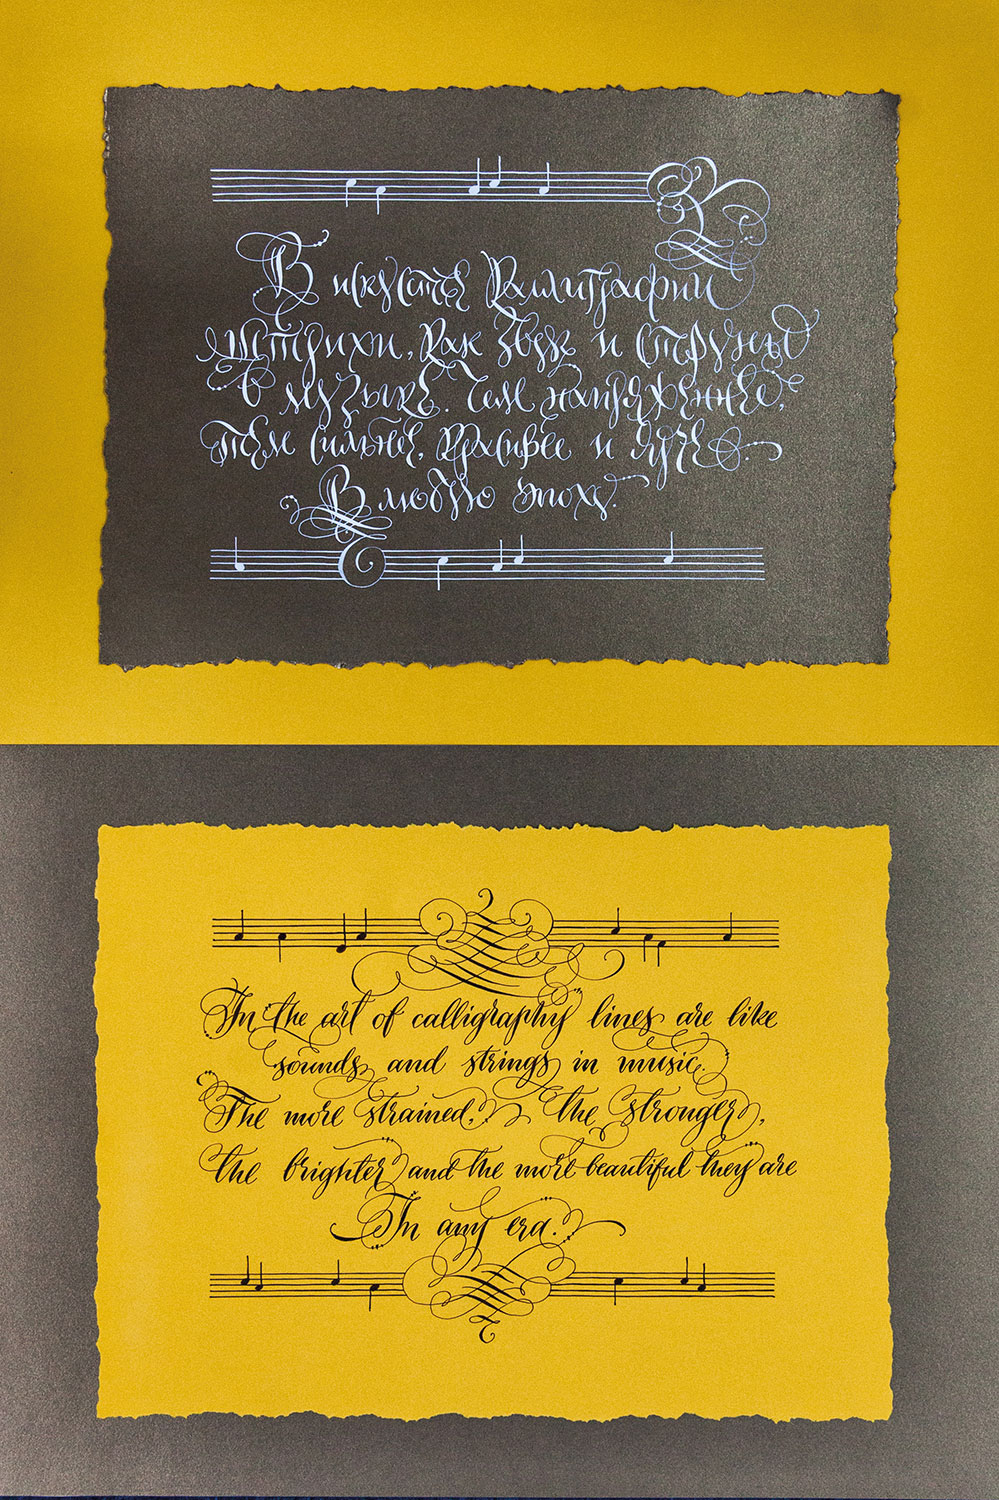 В искусстве каллиграфии
штрихи, как звук и струны
в музыке. Чем напряженнее,
тем сильнее, красивее и ярче.
В любую эпоху.
In the art of calligraphy lines are like
sounds and strings in music.
The more strained, the stronger,
the brighter and the more beautiful they are
In any era.